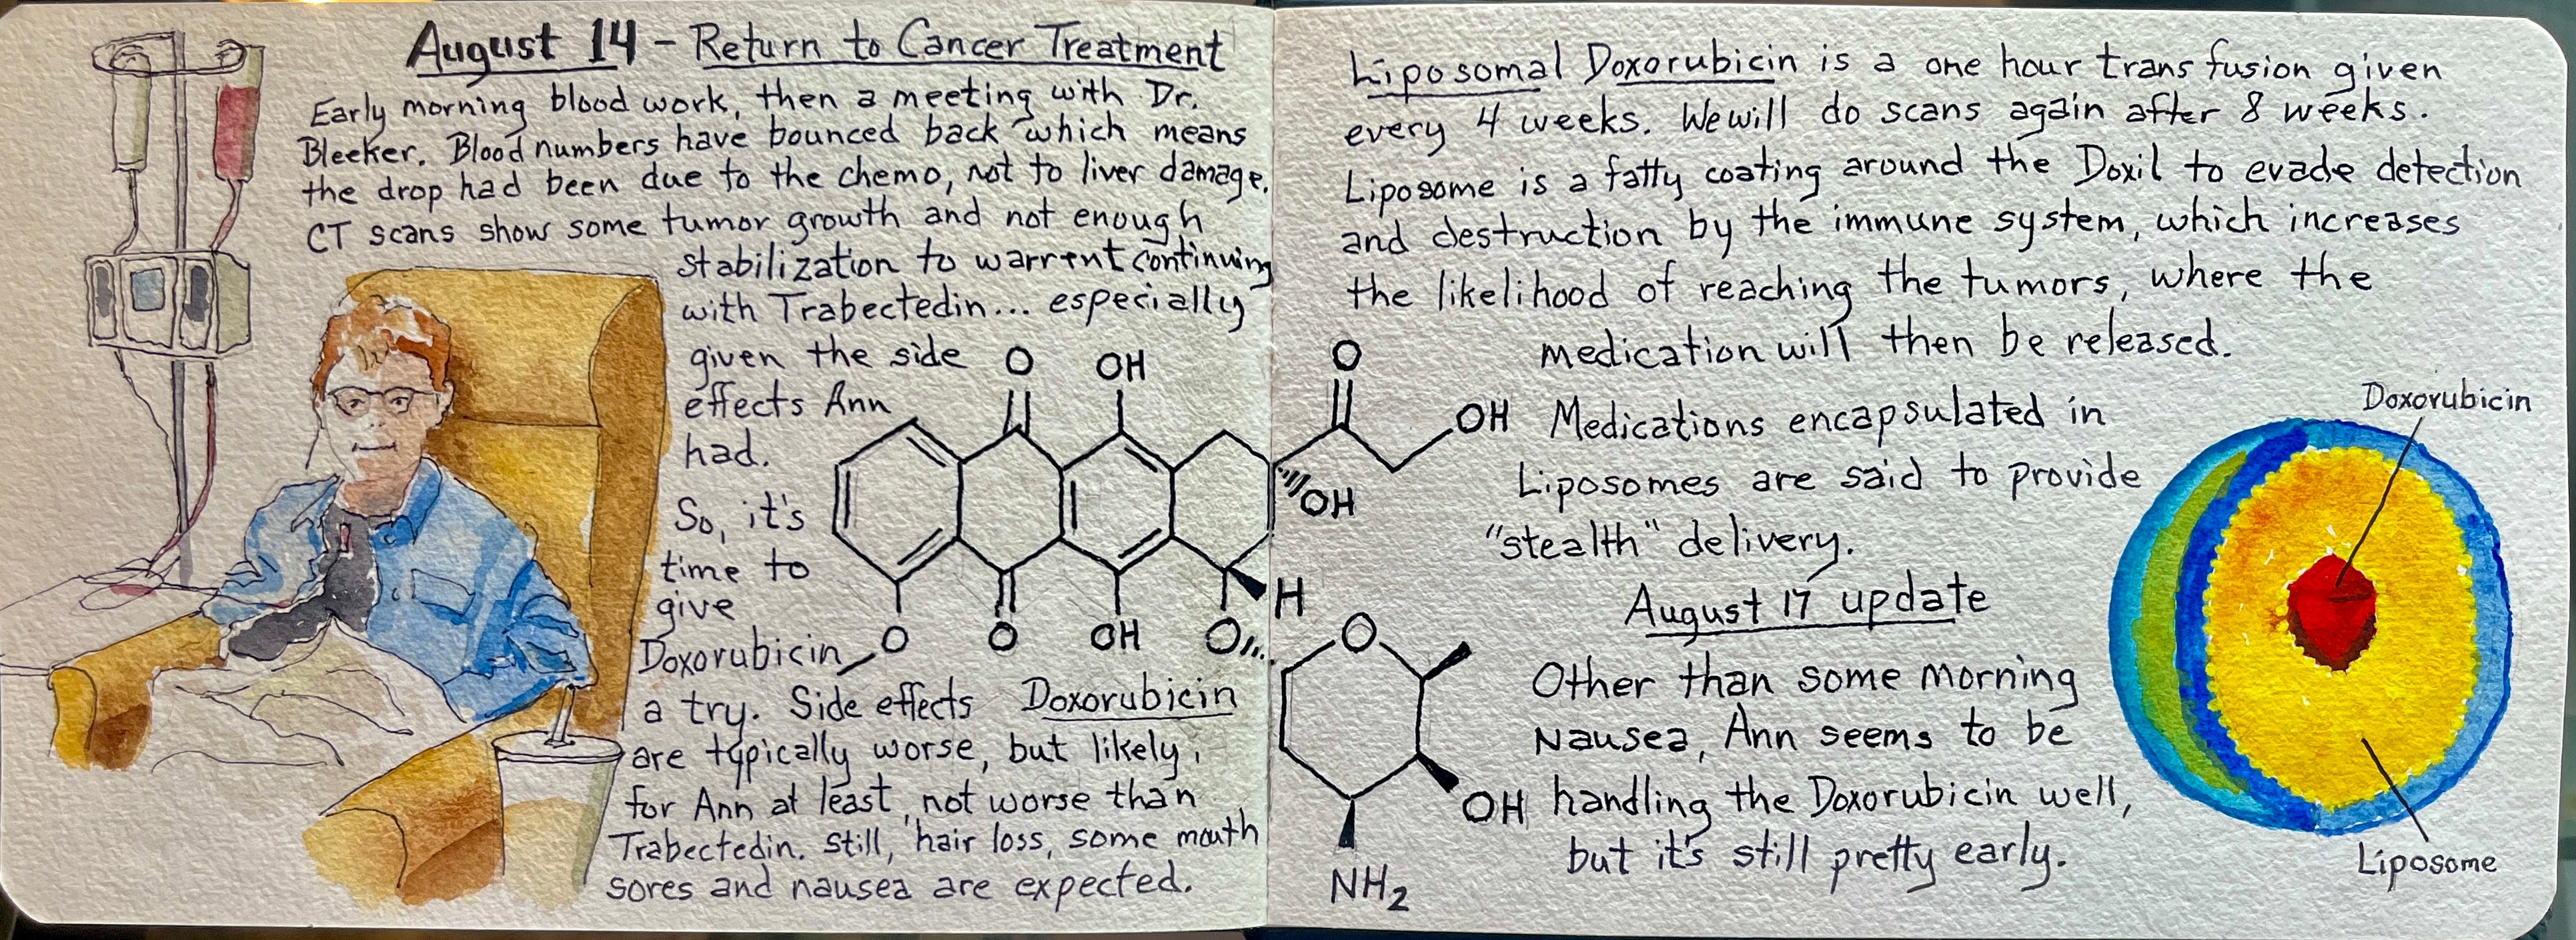 August 14 - Return to Cancer Treatment
Early morning blood work, then a meeting with Dr.
Bleeker. Blood numbers have bounced back which means
the drop had been due to the chemo, not to liver damage.
CT scans show some tumor growth and not enough
stabilization to warrent continuing
with Trabectedin... especially
given the side
effects Ann
had.
So, it's
time to
give
Doxorubicin
a try. Side effects
are typically worse, but likely,
for Ann at least, not worse than
Trabectedin. Still, hair loss, some mouth
sores and nausea are expected.
O
OH
O
O
OH
O
H
Doxorubicin
Liposomal Doxorubicin is a one hour transfusion given
every 4 weeks. We will do scans again after 8 weeks.
Liposome is a fatty coating around the Doxil to evade detection
and destruction by the immune system, which increases
the likelihood of reaching the tumors, where the
medication will then be released.
O
OH
OH
O
OH
NH2
Medications encapsulated in
Liposomes are said to provide
"stealth" delivery.
August 17 update
Other than some morning
nausea, Ann seems to be
handling the Doxorubicin well,
but it's still pretty early.
Doxorubicin
Liposome